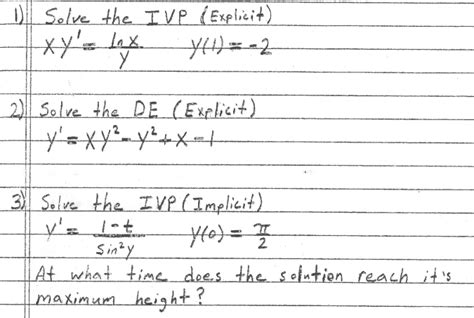 1) Solve the IVP (Explicit)
xy' = lnx/y   y(1) = -2
2) Solve the DE (Explicit)
y' = xy² - y² + x - 1
3) Solve the IVP (Implicit)
y' = 1-t/sin²y   y(0) = π/2
At what time does the solution reach it's
maximum height?